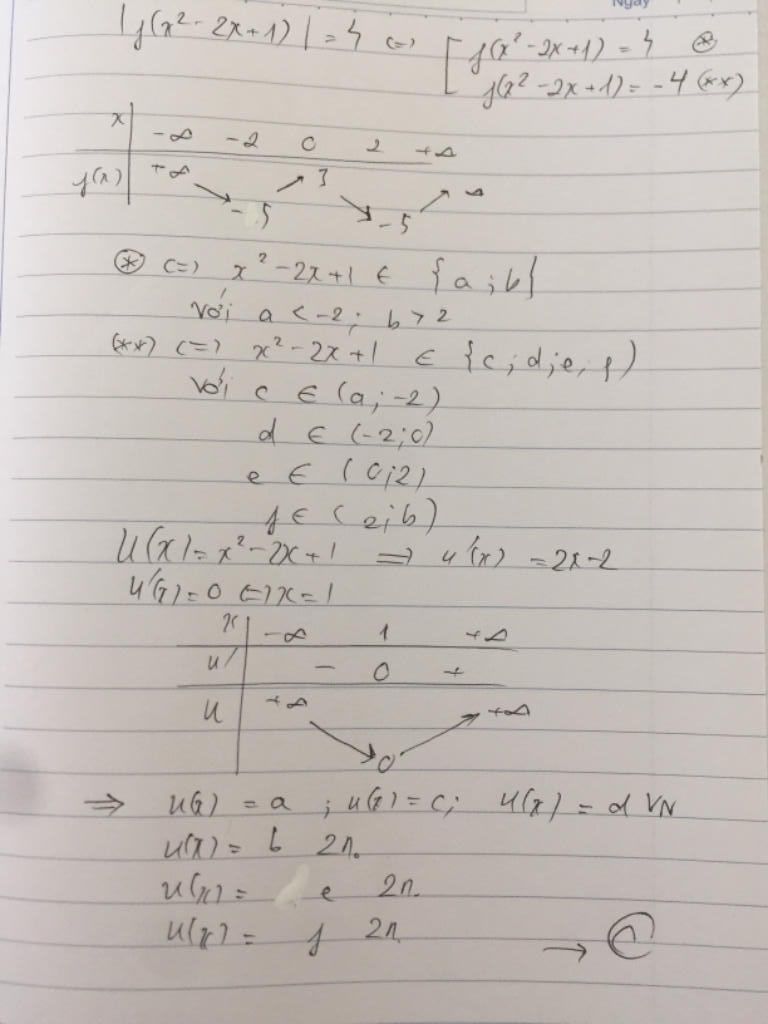 Ngày
|f(x² - 2x + 1)| = 4 <=> [ f(x² - 2x + 1) = 4 (*)
f(x² - 2x + 1) = -4 (**)
x | -∞ -2 0 2 +∞
f(x) | +∞ ↘ -5 ↗ 3 ↘ -5 ↗ ∞
(*) <=> x² - 2x + 1 ∈ {a ; b}
với a < -2 ; b > 2
(**) <=> x² - 2x + 1 ∈ {c ; d ; e, f)
Với c ∈ (a ; -2)
d ∈ (-2 ; 0)
e ∈ (0 ; 2)
f ∈ (2 ; b)
U(x) = x² - 2x + 1 => u'(x) = 2x - 2
U'(x) = 0 <=> x = 1
x | -∞ 1 +∞
u' | - 0 +
u | +∞ ↘ 0 ↗ +∞
=> u(x) = a ; u(x) = c ; u(x) = d VN
u(x) = b 2n.
u(x) = e 2n.
u(x) = f 2n
→ C